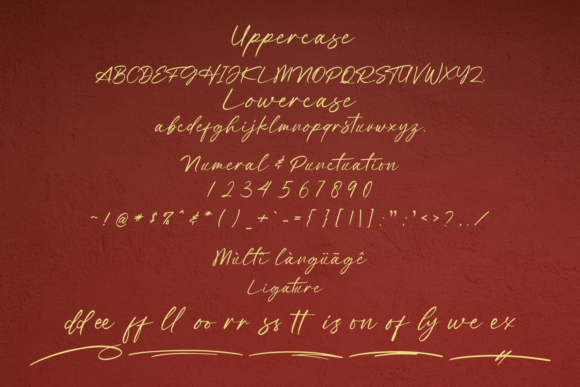 Uppercase
ABCDEFGHIJKLMNOPQRSTUVWXYZ
Lowercase
abcdefghijklmnopqrstuvwxyz.
Numeral & Punctuation
1 2 3 4 5 6 7 8 9 0
~ ! @ # $ % ^ & * ( ) _ + ` - = { } [ | \ ] : " ; ' < > ? , . /
Mùlti làngüãgê
Ligature
dd ee ff ll oo rr ss tt is on of ly we ex